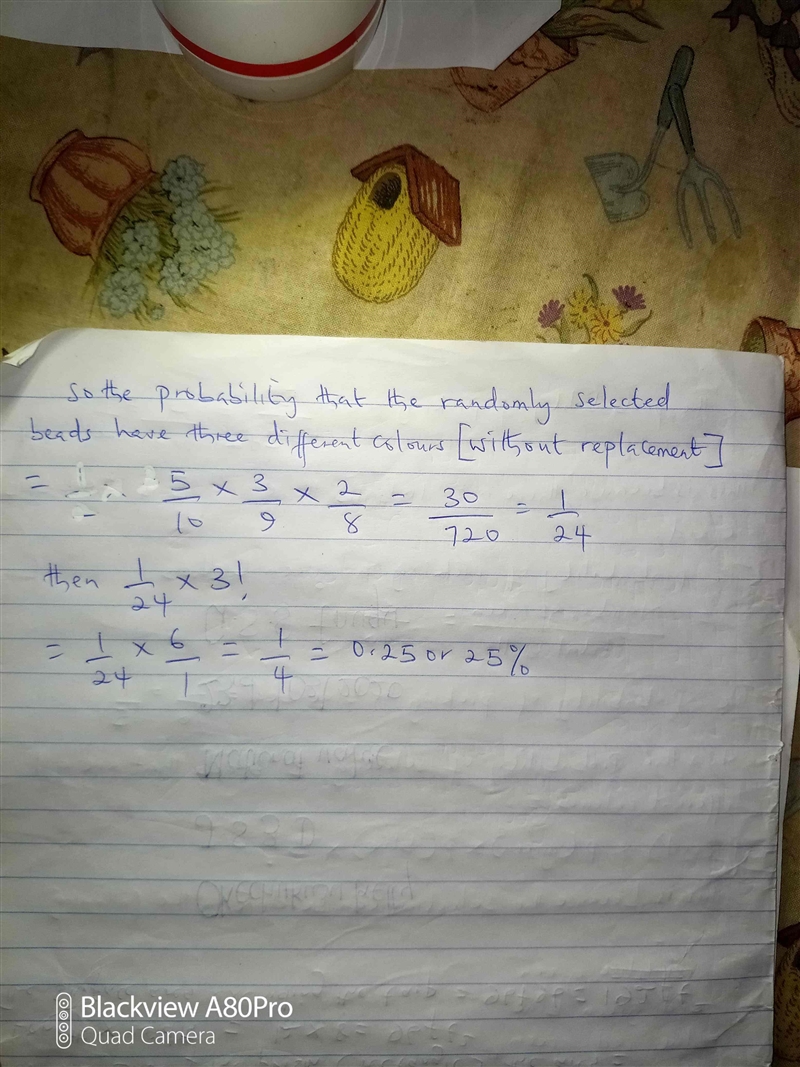 So the probability that the randomly selected
beads have three different colours [without replacement]
= 5/10 × 3/9 × 2/8 = 30/720 = 1/24
then 1/24 × 3!
= 1/24 × 6/1 = 1/4 = 0.25 or 25%
Blackview A80Pro
Quad Camera